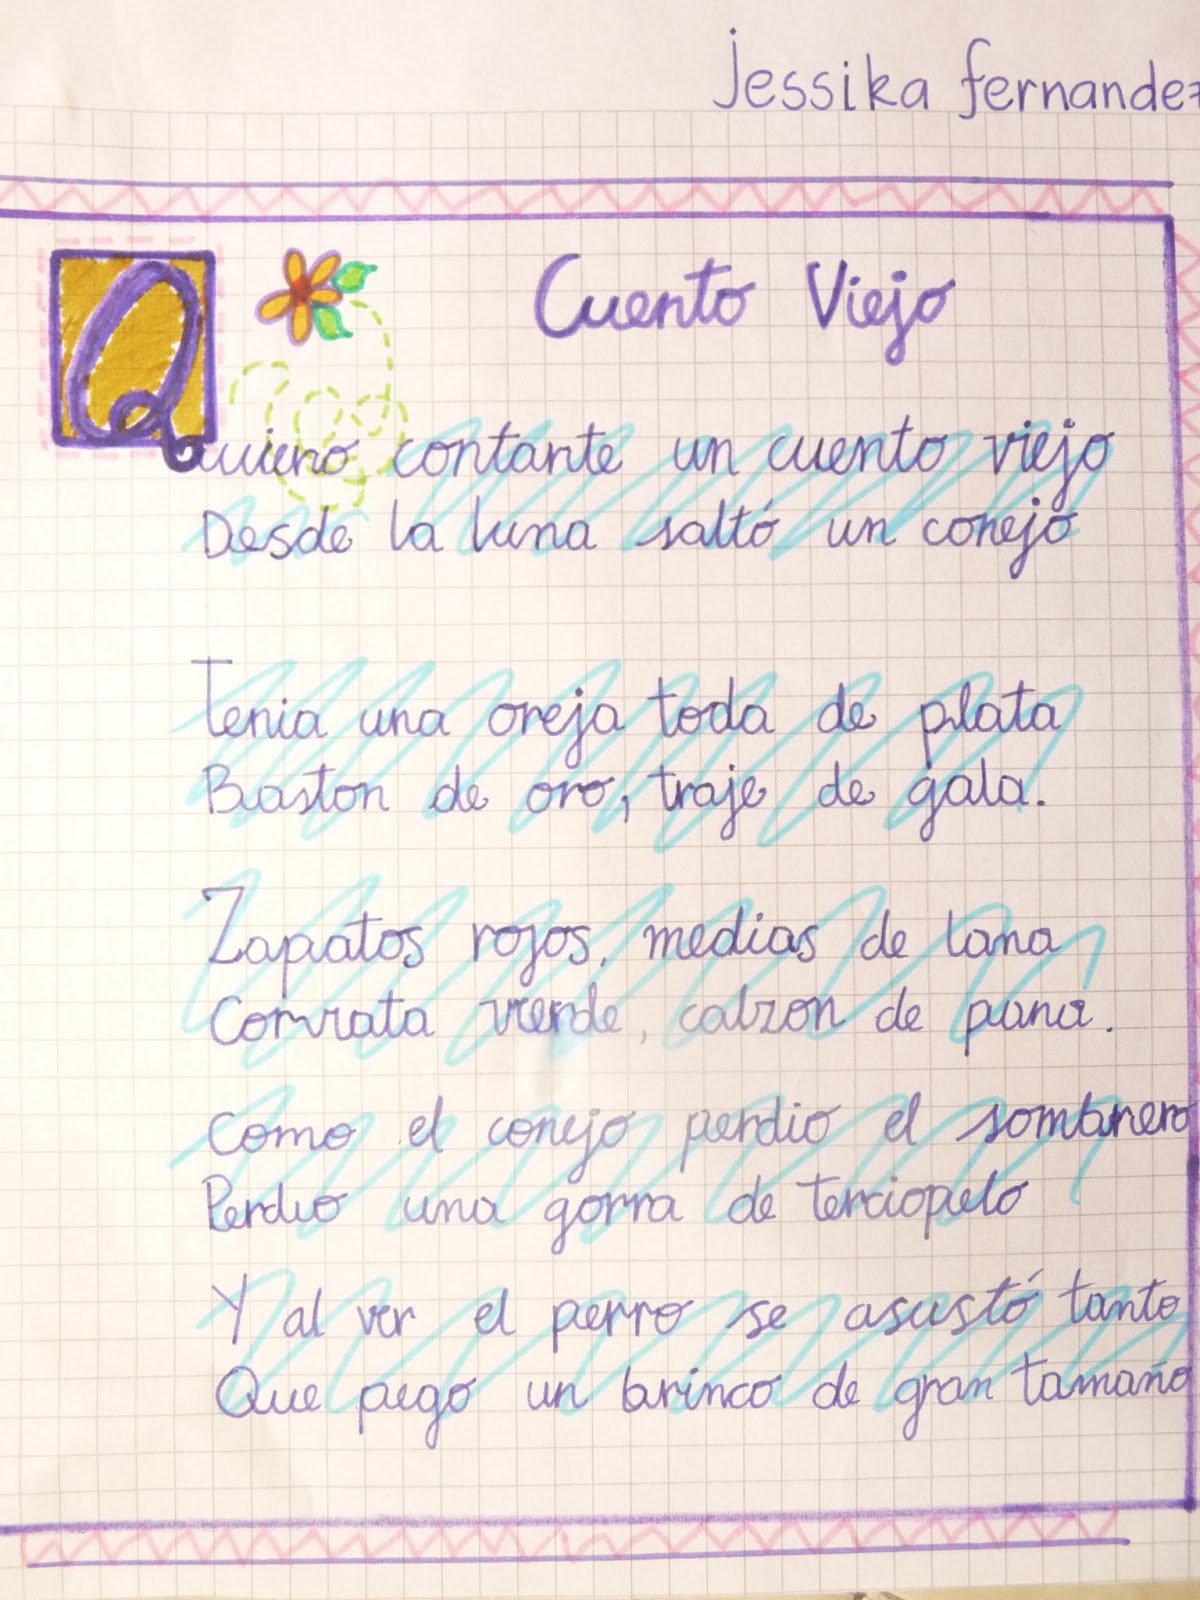 Jessika fernandez
Cuento Viejo
Quiero contarte un cuento viejo
Desde la luna saltó un conejo
Tenia una oreja toda de plata
Baston de oro, traje de gala.
Zapatos rojos, medias de lana
Corvata verde, calzon de pana.
Como el conejo perdio el sombrero
Perdio una gorra de terciopelo
Y al ver el perro se asustó tanto
Que pego un brinco de gran tamaño